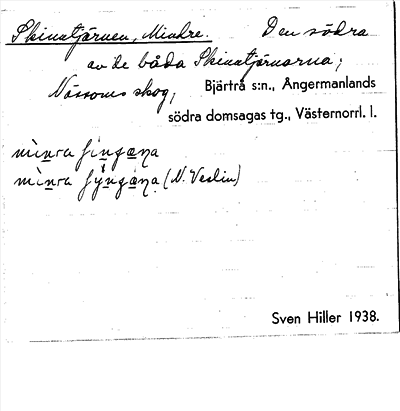 Skinntjärnen, Mindre. Den södra
av de båda Skinntjärnarna;
Nässoms skog, Bjärtrå s:n., Ångermanlands
södra domsagas tg., Västernorrl. l.
(N. Veslin)
Sven Hiller 1938.